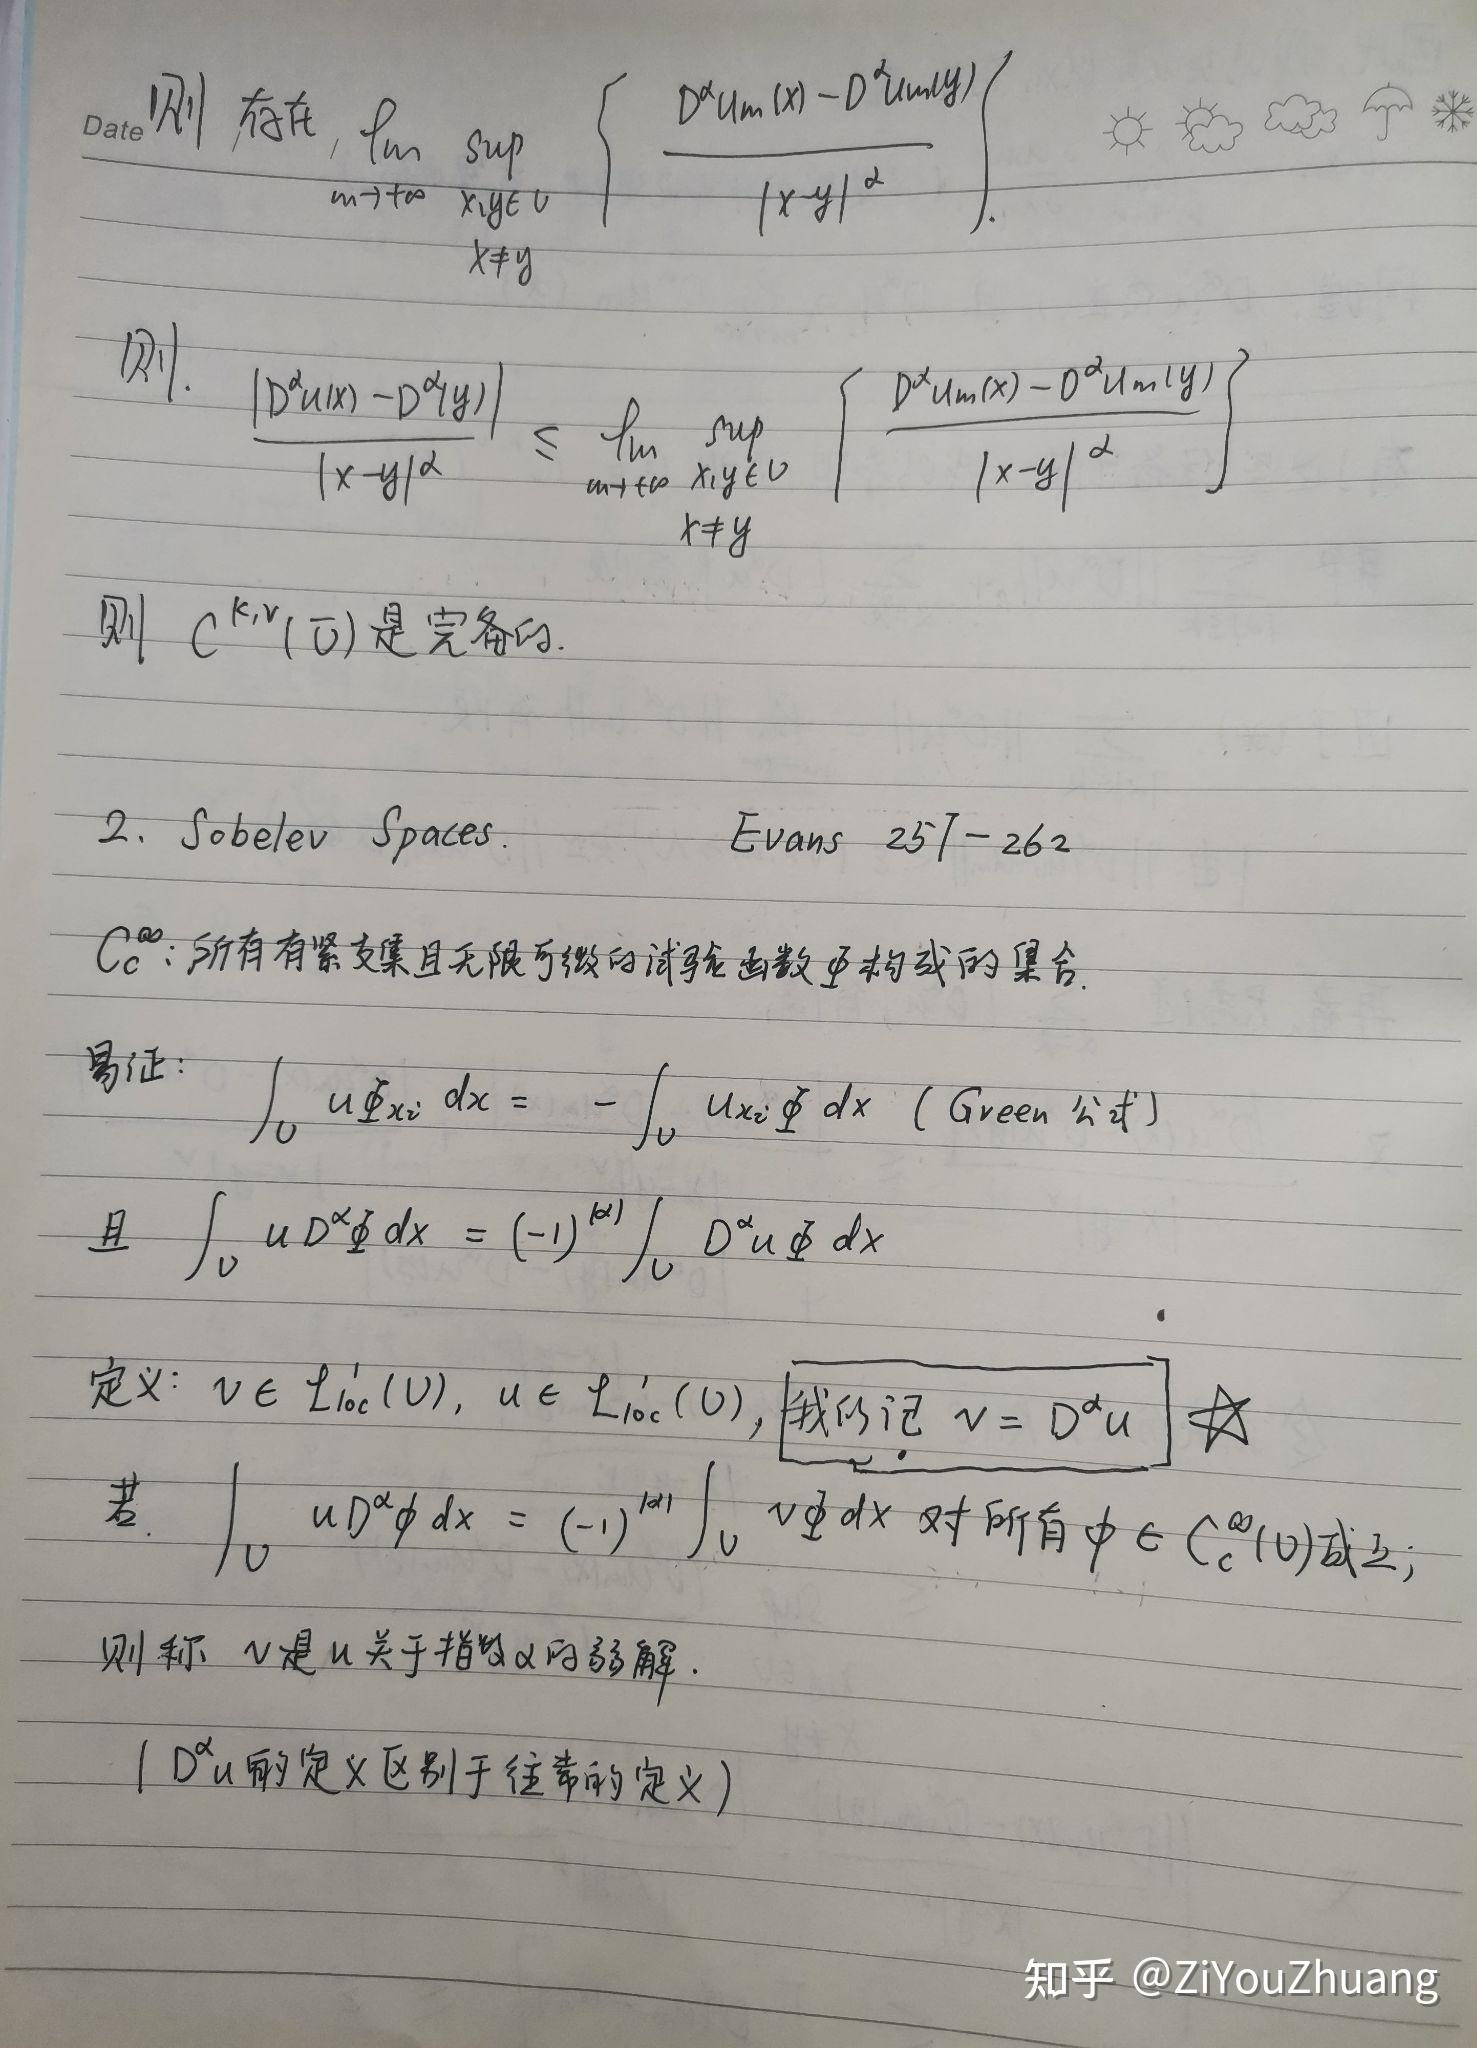 Date 则 存在, lim sup { D^α u_m(x) - D^α u_m(y) / |x-y|^α }.
m→+∞ x,y∈U
x≠y
则. |D^α u(x) - D^α(y)| / |x-y|^α ≤ lim sup { D^α u_m(x) - D^α u_m(y) / |x-y|^α }
m→+∞ x,y∈U
x≠y
则 C^{k,γ}(Ū) 是完备的.
2. Sobelev Spaces. Evans 257-262
C_c^∞: 所有有紧支集且无限可微的试验函数Φ构成的集合.
易证: ∫_U uΦ_{xi} dx = - ∫_U u_{xi}Φ dx (Green 公式)
且 ∫_U u D^αΦ dx = (-1)^{|α|} ∫_U D^α u Φ dx
定义: v ∈ L^1_loc(U), u ∈ L^1_loc(U), 我们记 v = D^α u ☆
若. ∫_U u D^α ϕ dx = (-1)^{|α|} ∫_U vΦ dx 对所有 ϕ ∈ C_c^∞(U) 成立;
则称 v是u关于指数α的弱解.
(D^α u 的定义区别于往常的定义)
知乎 @ZiYouZhuang